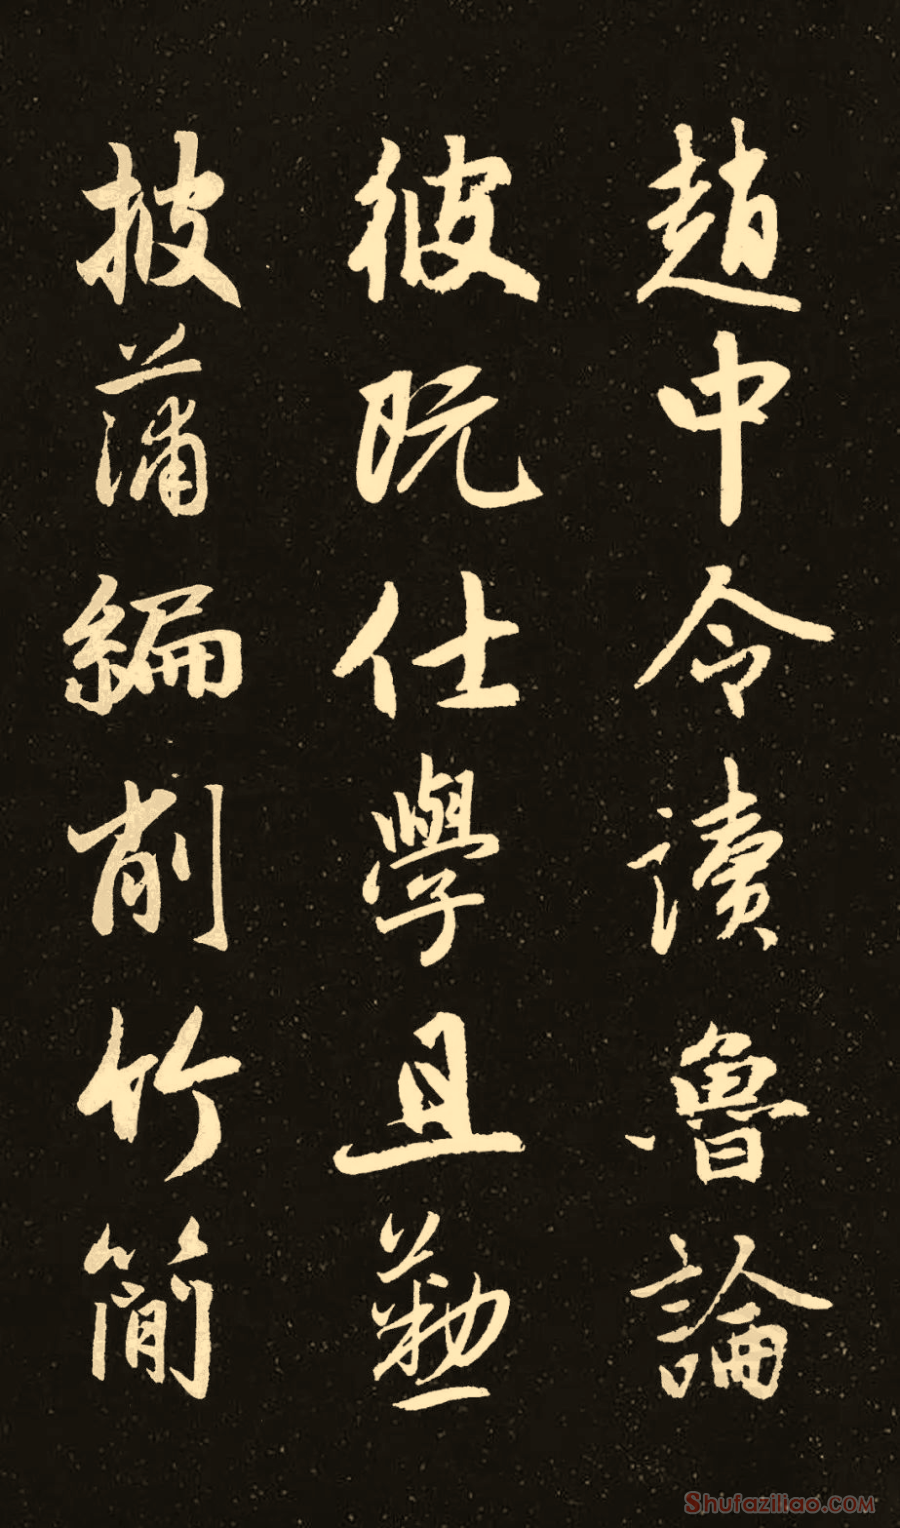 趙中令讀魯論
彼既仕學且勤
披蒲編削竹簡
Shufaziliao.COM